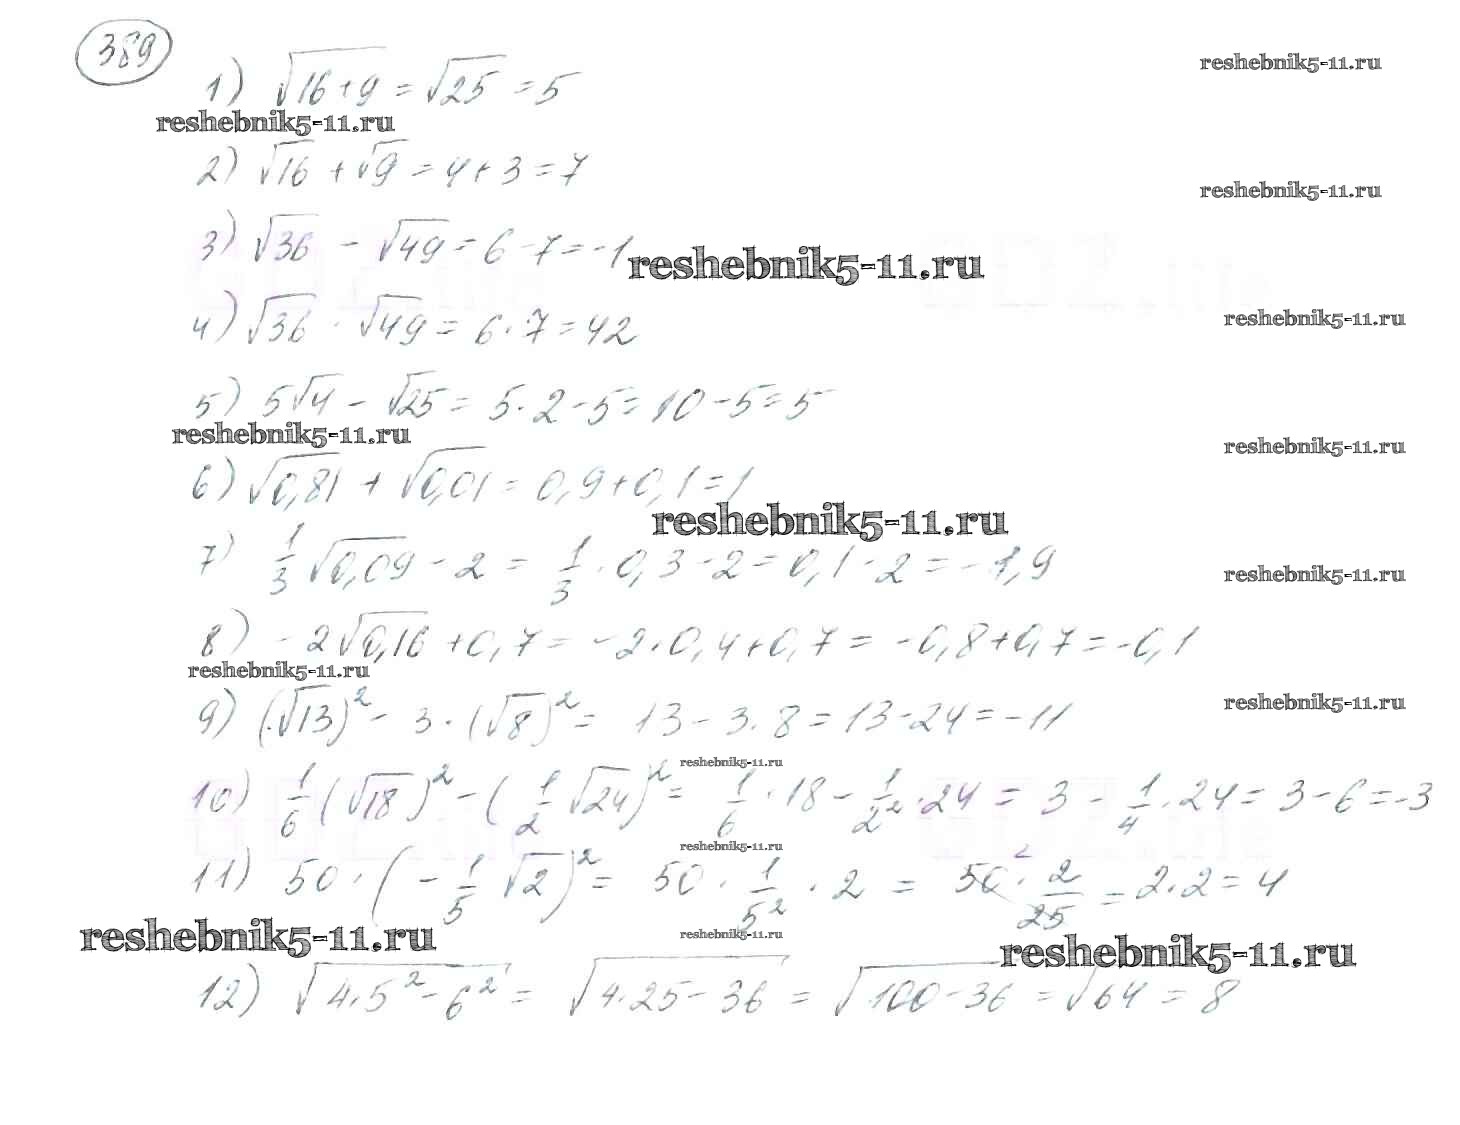 389
1) √(16+9) = √25 = 5
reshebnik5-11.ru
reshebnik5-11.ru
2) √16 + √9 = 4+3 = 7
reshebnik5-11.ru
3) √36 - √49 = 6-7 = -1
reshebnik5-11.ru
4) √36 · √49 = 6·7 = 42
reshebnik5-11.ru
5) 5√4 - √25 = 5·2-5 = 10-5 = 5
reshebnik5-11.ru
reshebnik5-11.ru
6) √0,81 + √0,01 = 0,9+0,1 = 1
reshebnik5-11.ru
7) 1/3 √0,09 - 2 = 1/3 · 0,3 - 2 = 0,1-2 = -1,9
reshebnik5-11.ru
8) -2√0,16 + 0,7 = -2·0,4+0,7 = -0,8+0,7 = -0,1
reshebnik5-11.ru
9) (√13)² - 3·(√8)² = 13-3·8 = 13-24 = -11
reshebnik5-11.ru
reshebnik5-11.ru
10) 1/6 (√18)² - (1/2 √24)² = 1/6 · 18 - 1/2² · 24 = 3 - 1/4 · 24 = 3-6 = -3
reshebnik5-11.ru
11) 50 · (-1/5 √2)² = 50 · 1/5² · 2 = 50 · 2/25 = 2·2 = 4
reshebnik5-11.ru
reshebnik5-11.ru
reshebnik5-11.ru
12) √(4·5²-6²) = √(4·25-36) = √(100-36) = √64 = 8